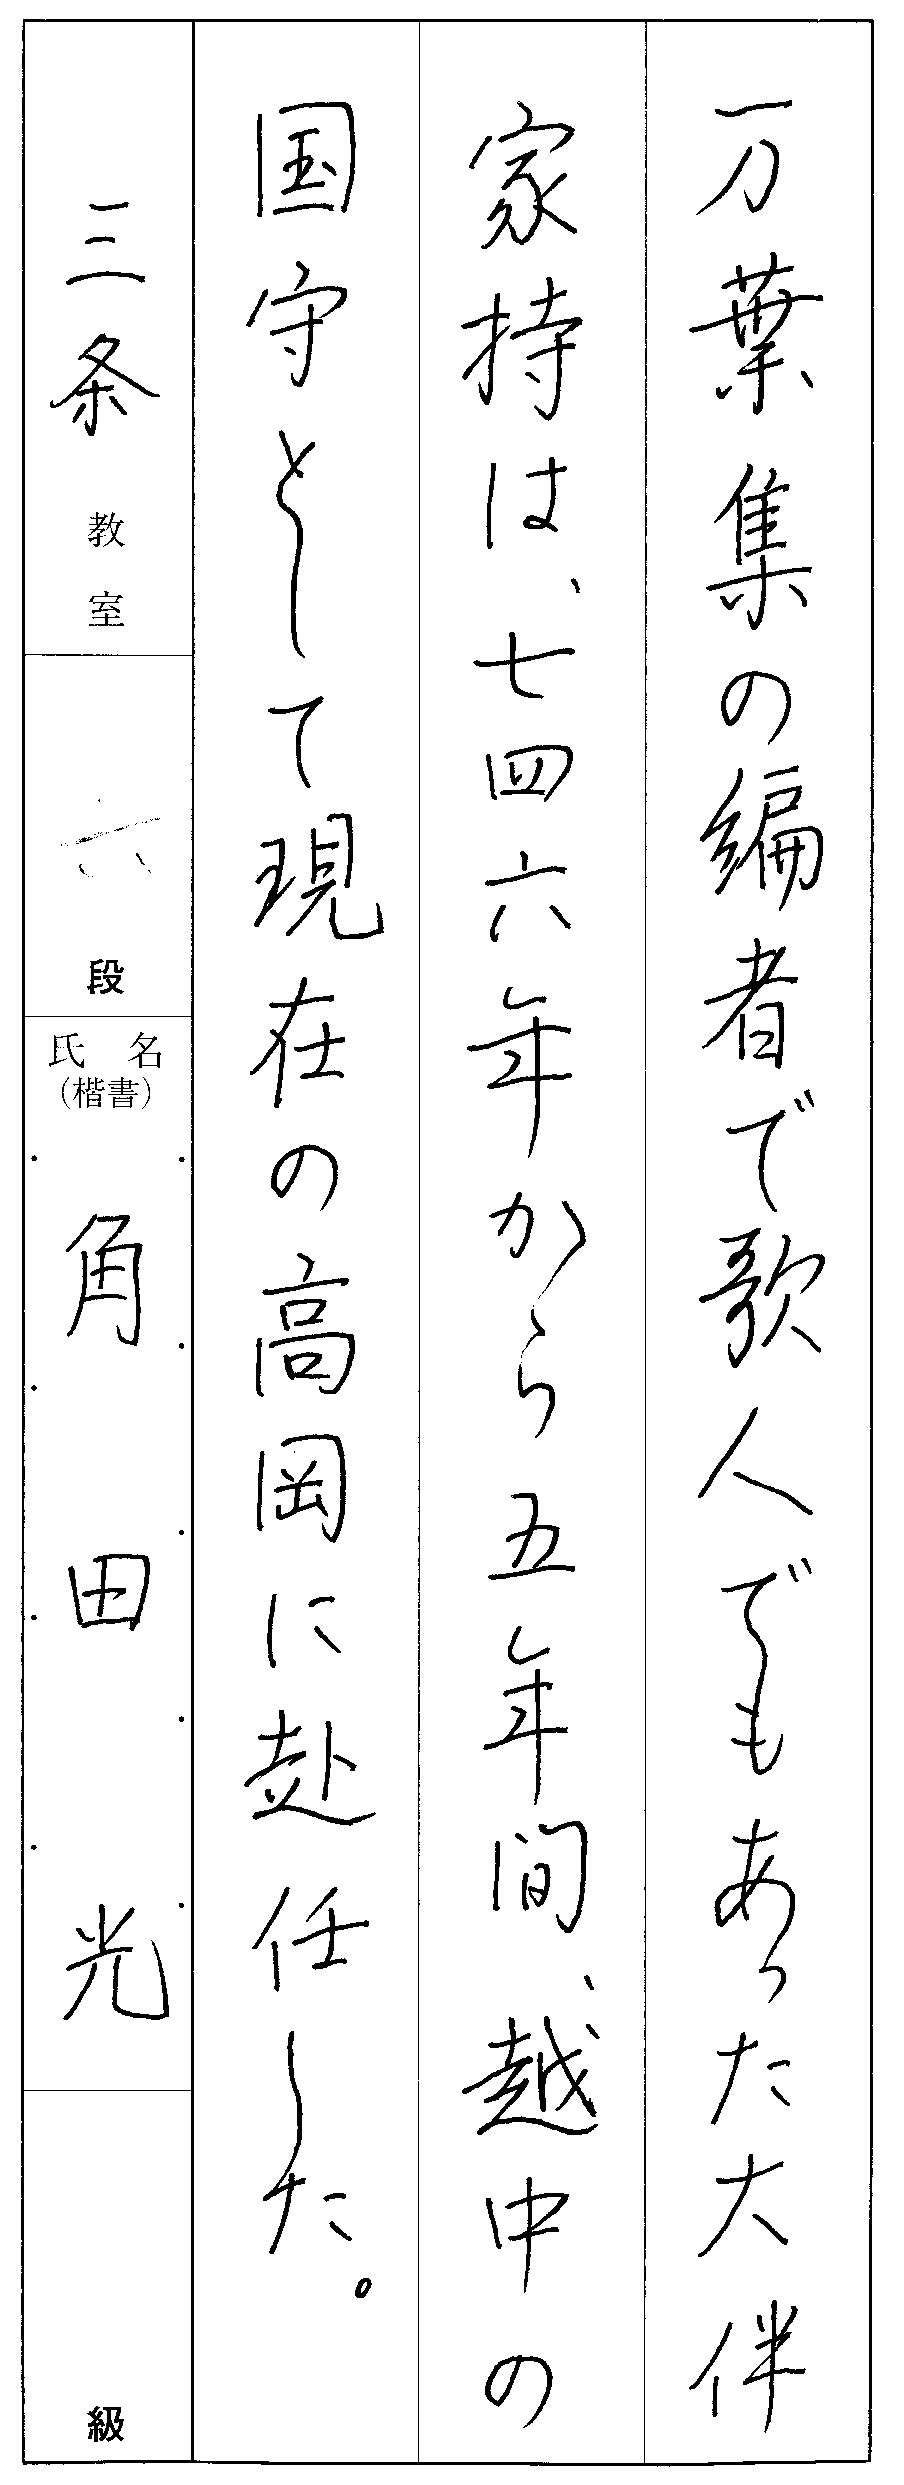 万葉集の編者で歌人でもあった大伴
家持は、七四六年から五年間、越中の
国守として現在の高岡に赴任した。
三条教室
六段
氏名
(楷書)
角田光
級